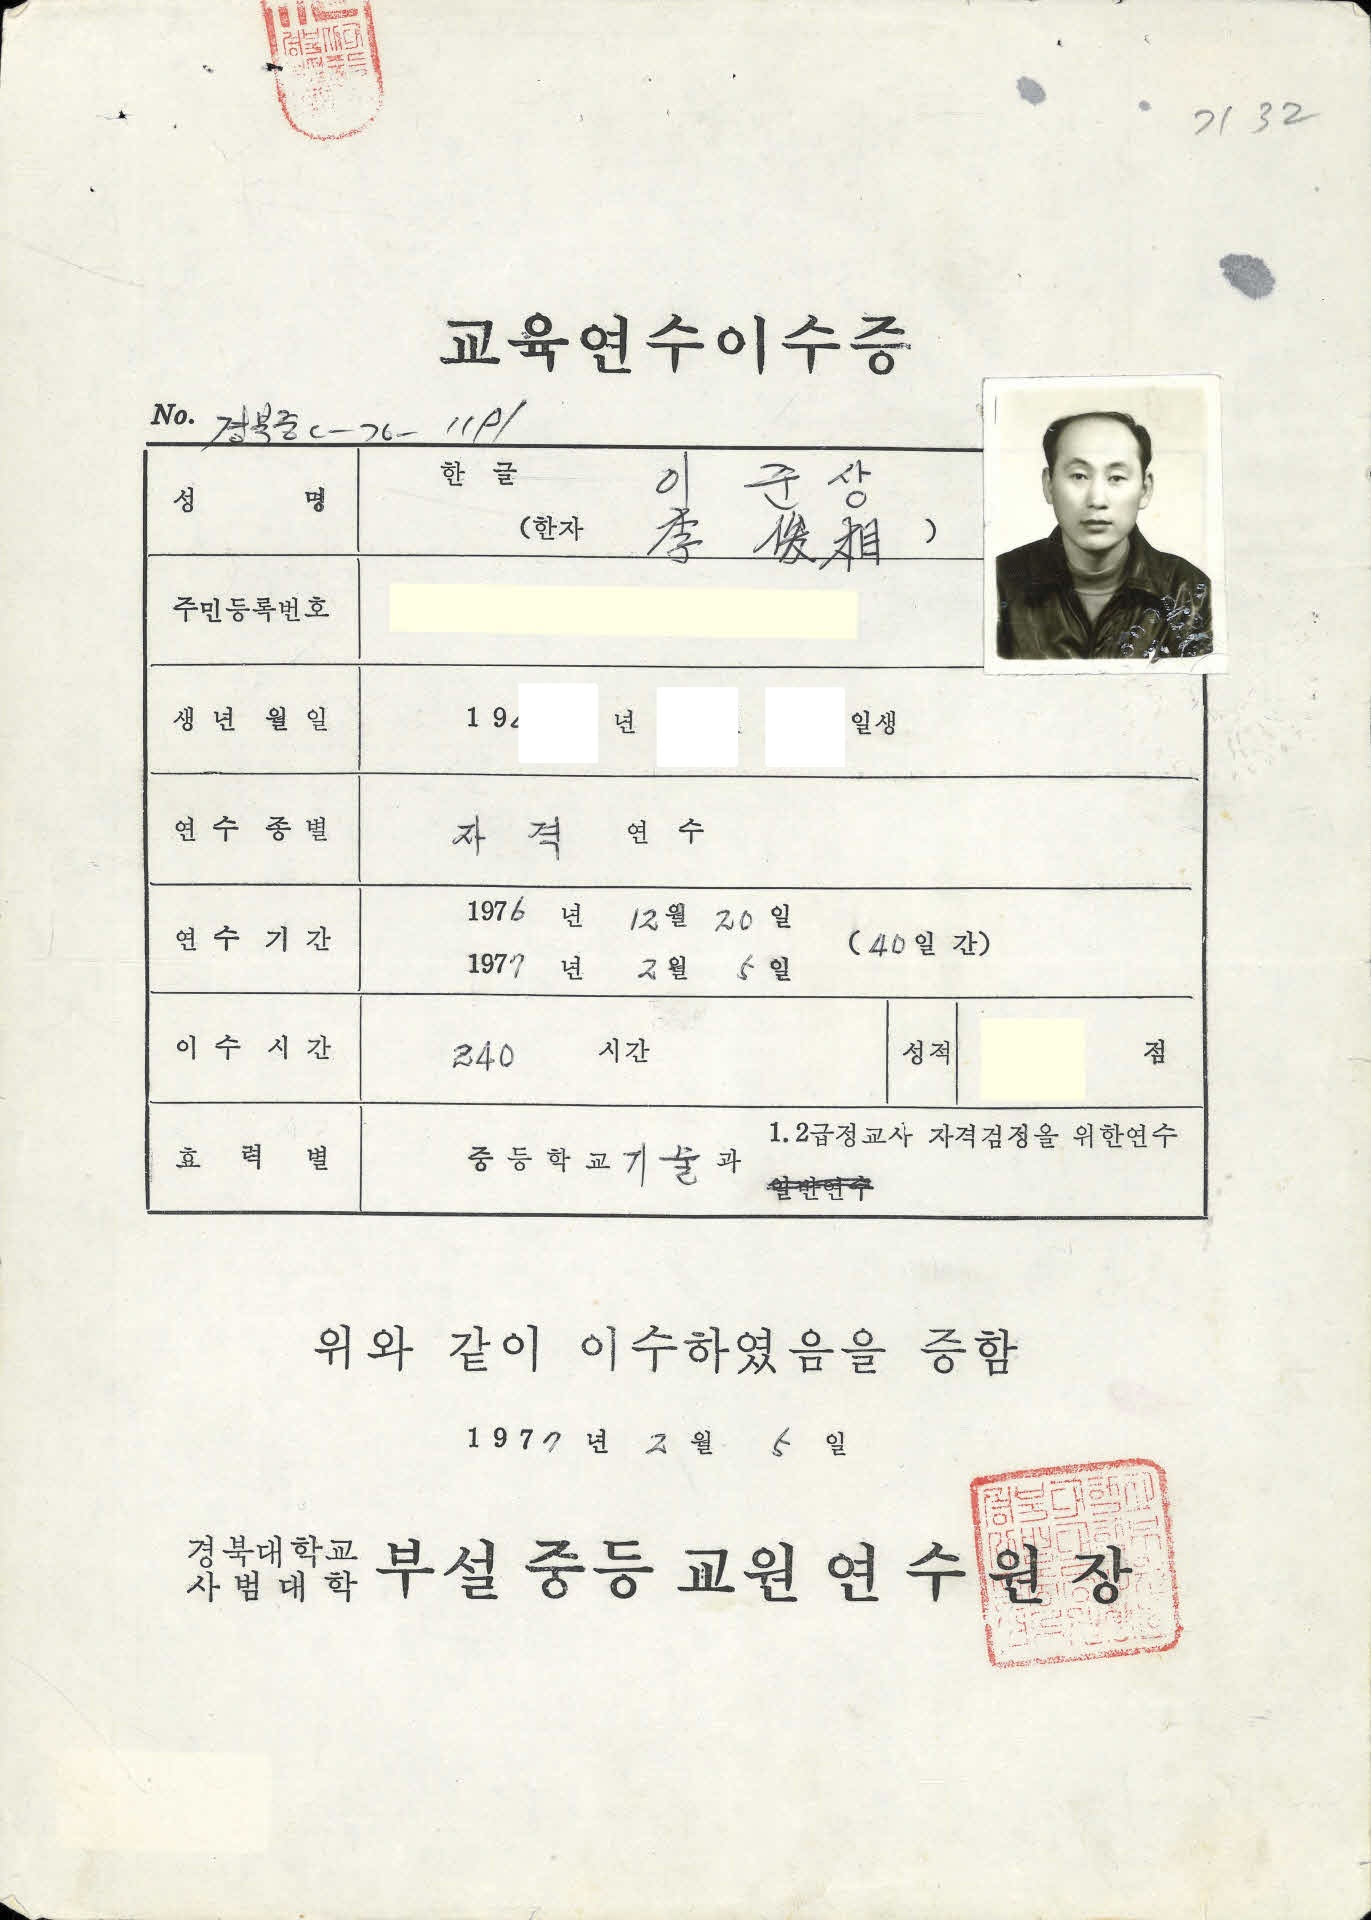 기 32
교육연수이수증
No. 경북중 c-76-
성 명 한 글 이 준 상
(한자 李 俊 相 )
주민등록번호
생 년 월 일 19 년 일생
연 수 종 별 자 격 연 수
연 수 기 간 1976 년 12월 20 일
1977 년 2월 5 일 (40일 간)
이 수 시 간 240 시간 성적 점
효 력 별 중 등 학 교 기 술 과 1.2급정교사 자격검정을 위한연수
일반연수
위와 같이 이수하였음을 증함
1977 년 2 월 5 일
경북대학교
사 범 대 학 부설 중등 교원 연 수 원 장